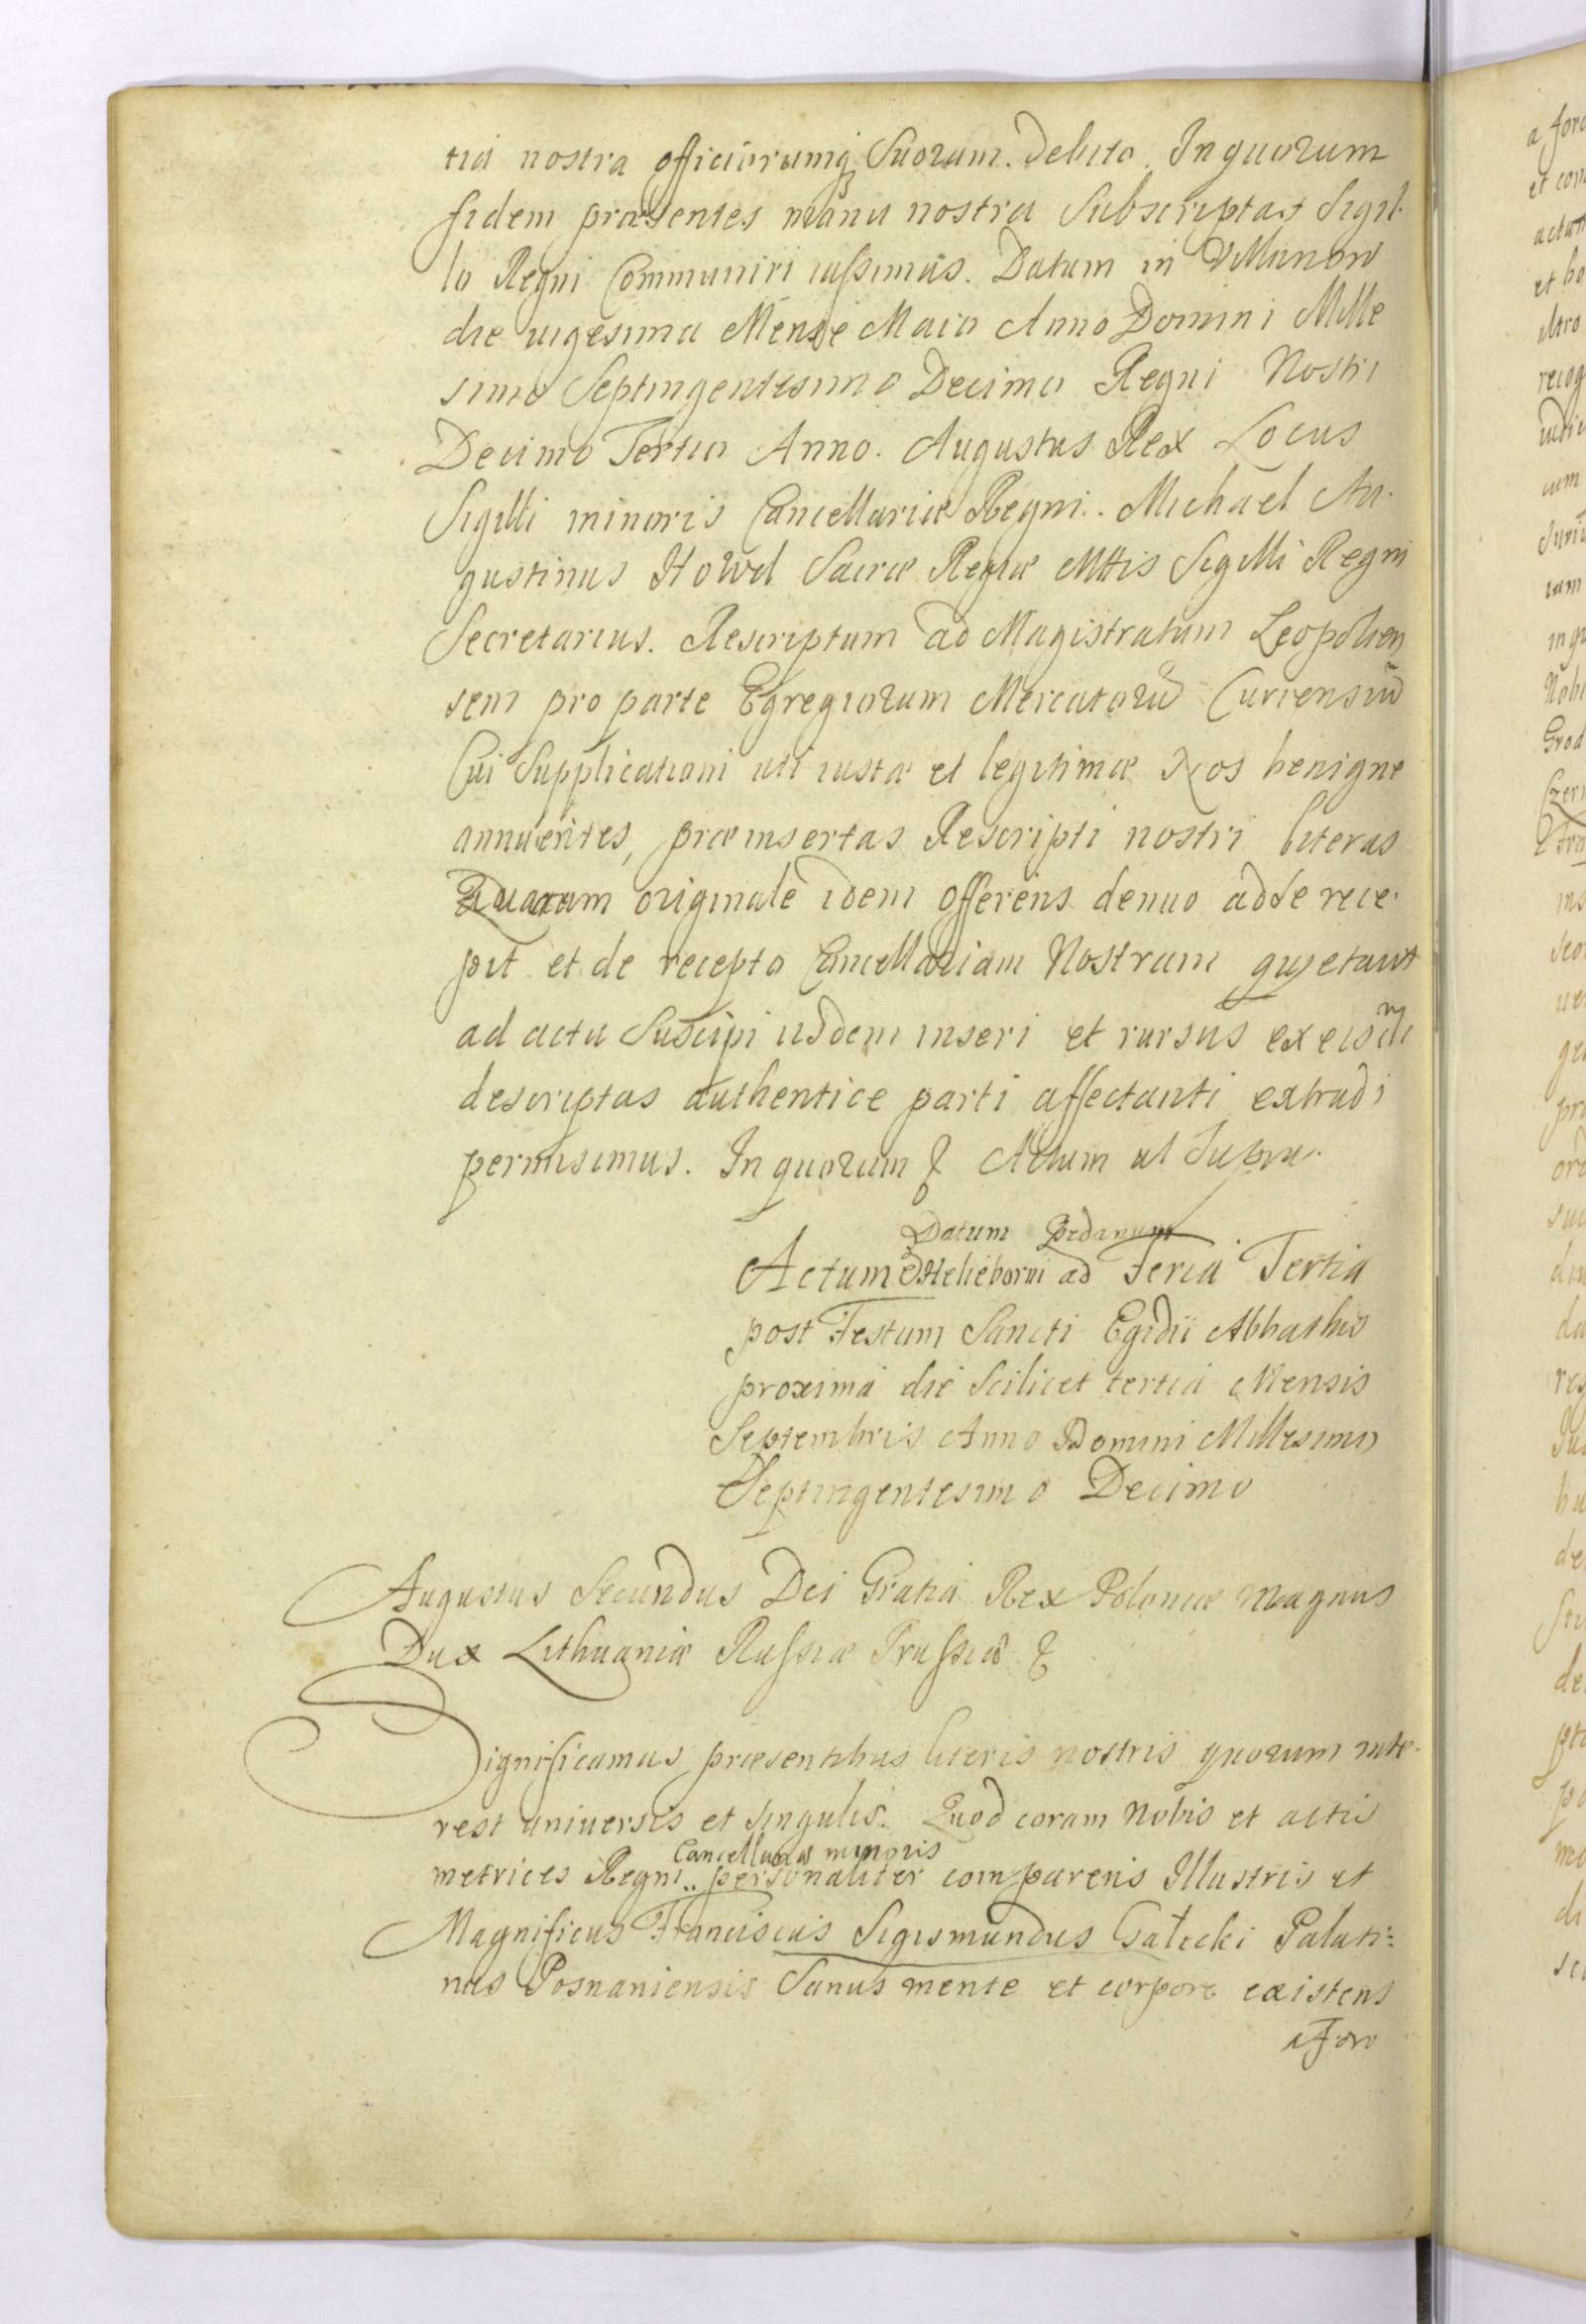 tia nostra officiorumq́ Suorum. debito. In quorum
fidem præsentes manu nostra Subscriptas Sigil-
lo Regni Communiri iussimus. Datum in
die uigesima Mense Maio Anno Domini Mille
simo Septingentesimo Decimo Regni Nostri
Decimo Tertio Anno. Augustus Rex Locus
Sigilli minoris Cancellariæ Regni. Michael Au-
gustinus Howel Sacræ Regiæ Mttis Sigilli Regni
Secretarius. Rescriptum ad Magistratum Leopolien
sem pro parte Egregiorum Mercatorũ Currensiũ
Cui Supplicationi uti iustæ et legitimæ Nos benigne
annuentes, præinsertas Rescripti nostri literas
Quarum originale idem offerens denuo ad se rece-
pit et de recepto Cancellariam Nostram quietauit
ad acta Suscipi iisdem inseri et rursus ex eisdẽ
descriptas authentice parti affectanti extradi
permisimus. In quorum & Actum ut Supra.
Datum
Actum ad Feria Tertia
post Festum Sancti Egidii Abbathis
proxima die Scilicet tertia Mensis
Septembris Anno Domini Millesimo
Septingentesimo Decimo
Augustus Secundus Dei Gratia Rex Poloniæ Magnus
Dux Lithuaniæ Russiæ Prussiæ &
Significamus præsentibus literis nostris quorum inte-
rest uniuersis et singulis. Quod coram Nobis et actis
Cancellariæ minoris
metrices Regni.. personaliter comparens Illustris et
Magnificus Franciscus Sigismundus Gałecki Palati=
nus Posnaniensis Sanus mente et corpore existens
a Foro